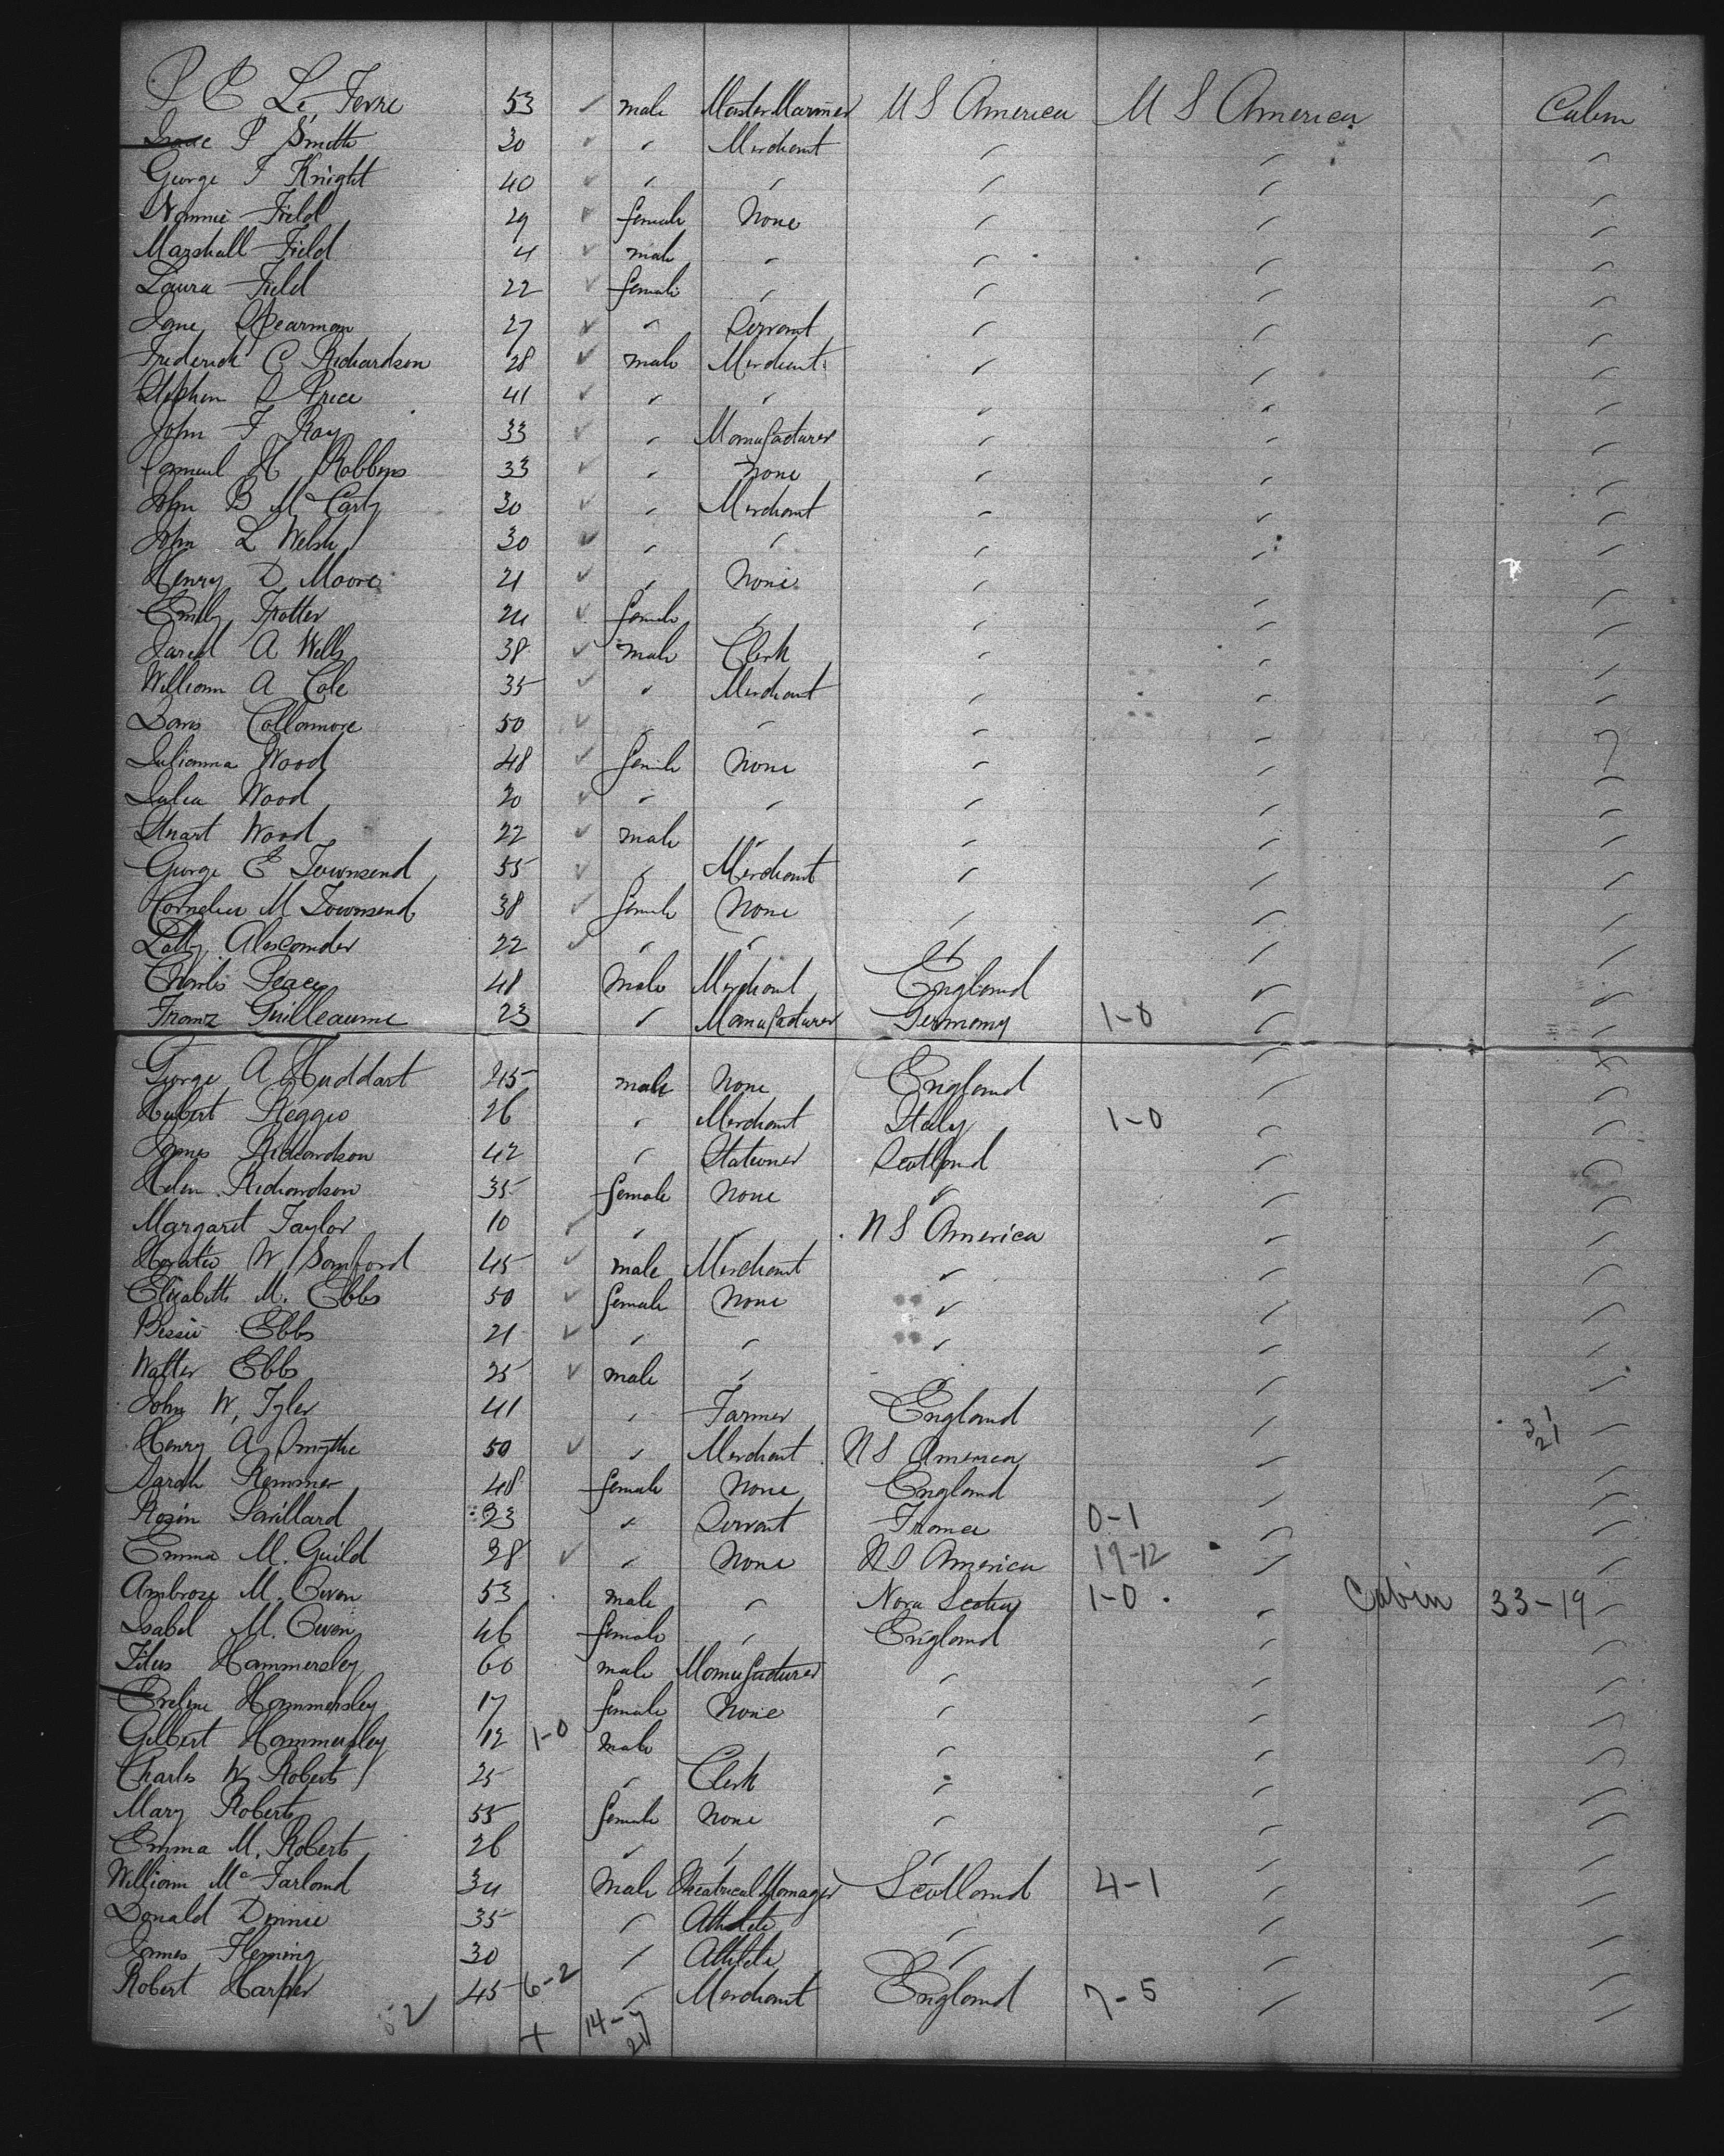 P C Le Fevre 53 ✓ male Master Mariner U S America U S America Cabin
Isaac P Smith 30 ✓ " Merchant " " "
George F Knight 40 ✓ " " " " "
Nannie Field 29 ✓ female None " " "
Marshall Field 4 ✓ male " " " "
Laura Field 22 ✓ female " " " "
Jane Spearman 27 ✓ " Servant " " "
Frederick C Richardson 28 ✓ male Merchant " " "
Stephen S Price 41 ✓ " " " " "
John F Ray 33 ✓ " Manufacturer " " "
Samuel H Robbins 33 ✓ " None " " "
John B McCarty 30 ✓ " Merchant " " "
John L Welsh 30 ✓ " " " " "
Henry D Moore 21 ✓ " None " " "
Emily Trotter 24 ✓ female " " " "
Jared A Wells 38 ✓ male Clerk " " "
William A Cole 35 ✓ " Merchant " " "
Davis Collamore 50 ✓ " " " " "
Julianna Wood 48 ✓ female None " " "
Julia Wood 20 ✓ " " " " "
Stuart Wood 22 ✓ male " " " "
George E Townsend 55 ✓ " Merchant " " "
Cornelia M Townsend 38 ✓ female None " " "
Alexander 22 ✓ " " " " "
Charles Peace 48 male Merchant England " "
Franz Guilleaume 23 " Manufacturer Germany 1-0 " "
George A Huddart 45 male None England " "
Hubert Reggio 26 " Merchant Italy 1-0 " "
James Richardson 42 " Stationer Scotland " "
Helen Richardson 35 female None " " "
Margaret Taylor 10 ✓ " " U S America " "
Horatio W Samford 45 ✓ male Merchant " " "
Elizabeth M. Ebbs 50 ✓ female None " " "
Bessie Ebbs 21 ✓ " " " " "
Walter Ebbs 25 ✓ male " " " "
John W. Tyler 41 " Farmer England " "
Henry A Smythe 50 ✓ " Merchant U S America " "
Sarah Kemmer 48 female None England " "
Savillard 23 " Servant France 0-1 " "
Emma M. Guild 28 ✓ " None U S America 19-12 " "
Ambrose M. Owen 53 male " Nova Scotia 1-0 " Cabin 33-19 "
Isabel M. Owen 46 female " England " "
Titus Hammersley 60 male Manufacturer " " "
Eveline Hammersley 17 female None " " "
Gilbert Hammersley 12 1-0 male " " "
Charles W Roberts 25 " Clerk " " "
Mary Roberts 55 female None " " "
Emma M. Roberts 26 " " " " "
William McFarland 34 Male Theatrical Manager Scotland 4-1 " "
Donald Dinnie 35 " Athlete " " "
James Fleming 30 " Athlete " " "
Robert Harper 45 6-2 " Merchant England 7-5 " "
52 ✓ + 14-7
21